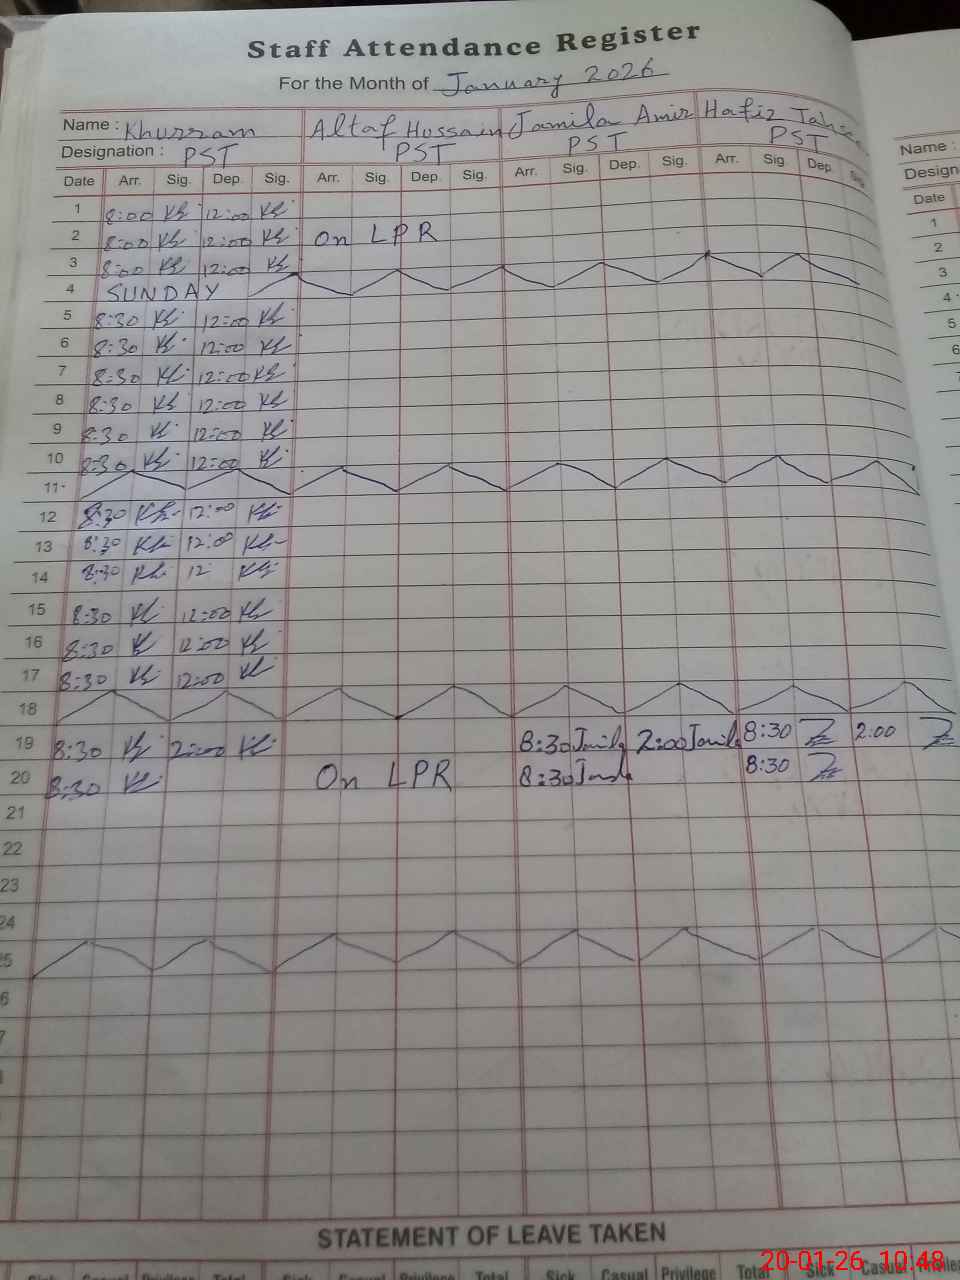 Staff Attendance Register
For the Month of January 2026
Name : Khurram Altaf Hussain Jamila Amir Hafiz
Designation : PST PST PST PST
Date Arr. Sig. Dep. Sig. Arr. Sig. Dep. Sig. Arr. Sig. Dep. Sig. Arr. Sig. Dep. Sig.
1 8:00 Kh 12:00 Kh
2 8:00 Kh 12:00 Kh On LPR
3 8:00 Kh 12:00 Kh
4 SUNDAY
5 8:30 Kh 12:00 Kh
6 8:30 Kh 12:00 Kh
7 8:30 Kh 12:00 Kh
8 8:30 Kh 12:00 Kh
9 8:30 Kh 12:00 Kh
10 8:30 Kh 12:00 Kh
11
12 8:30 Kh 12:00 Kh
13 8:30 Kh 12:00 Kh
14 8:30 Kh 12 Kh
15 8:30 Kh 12:00 Kh
16 8:30 Kh 12:00 Kh
17 8:30 Kh 12:00 Kh
18
19 8:30 Kh 2:00 Kh 8:30 Jamila 2:00 Jamila 8:30 2:00
20 8:30 Kh On LPR 8:30 Jamila 8:30
21
22
23
24
25
6
7
Name :
Design
Date
1
2
3
4
5
6
STATEMENT OF LEAVE TAKEN
Sick Casual Privilege Total Sick Casual Privilege Total Sick Casual Privilege Total Sick Casual
20-01-26 10:48